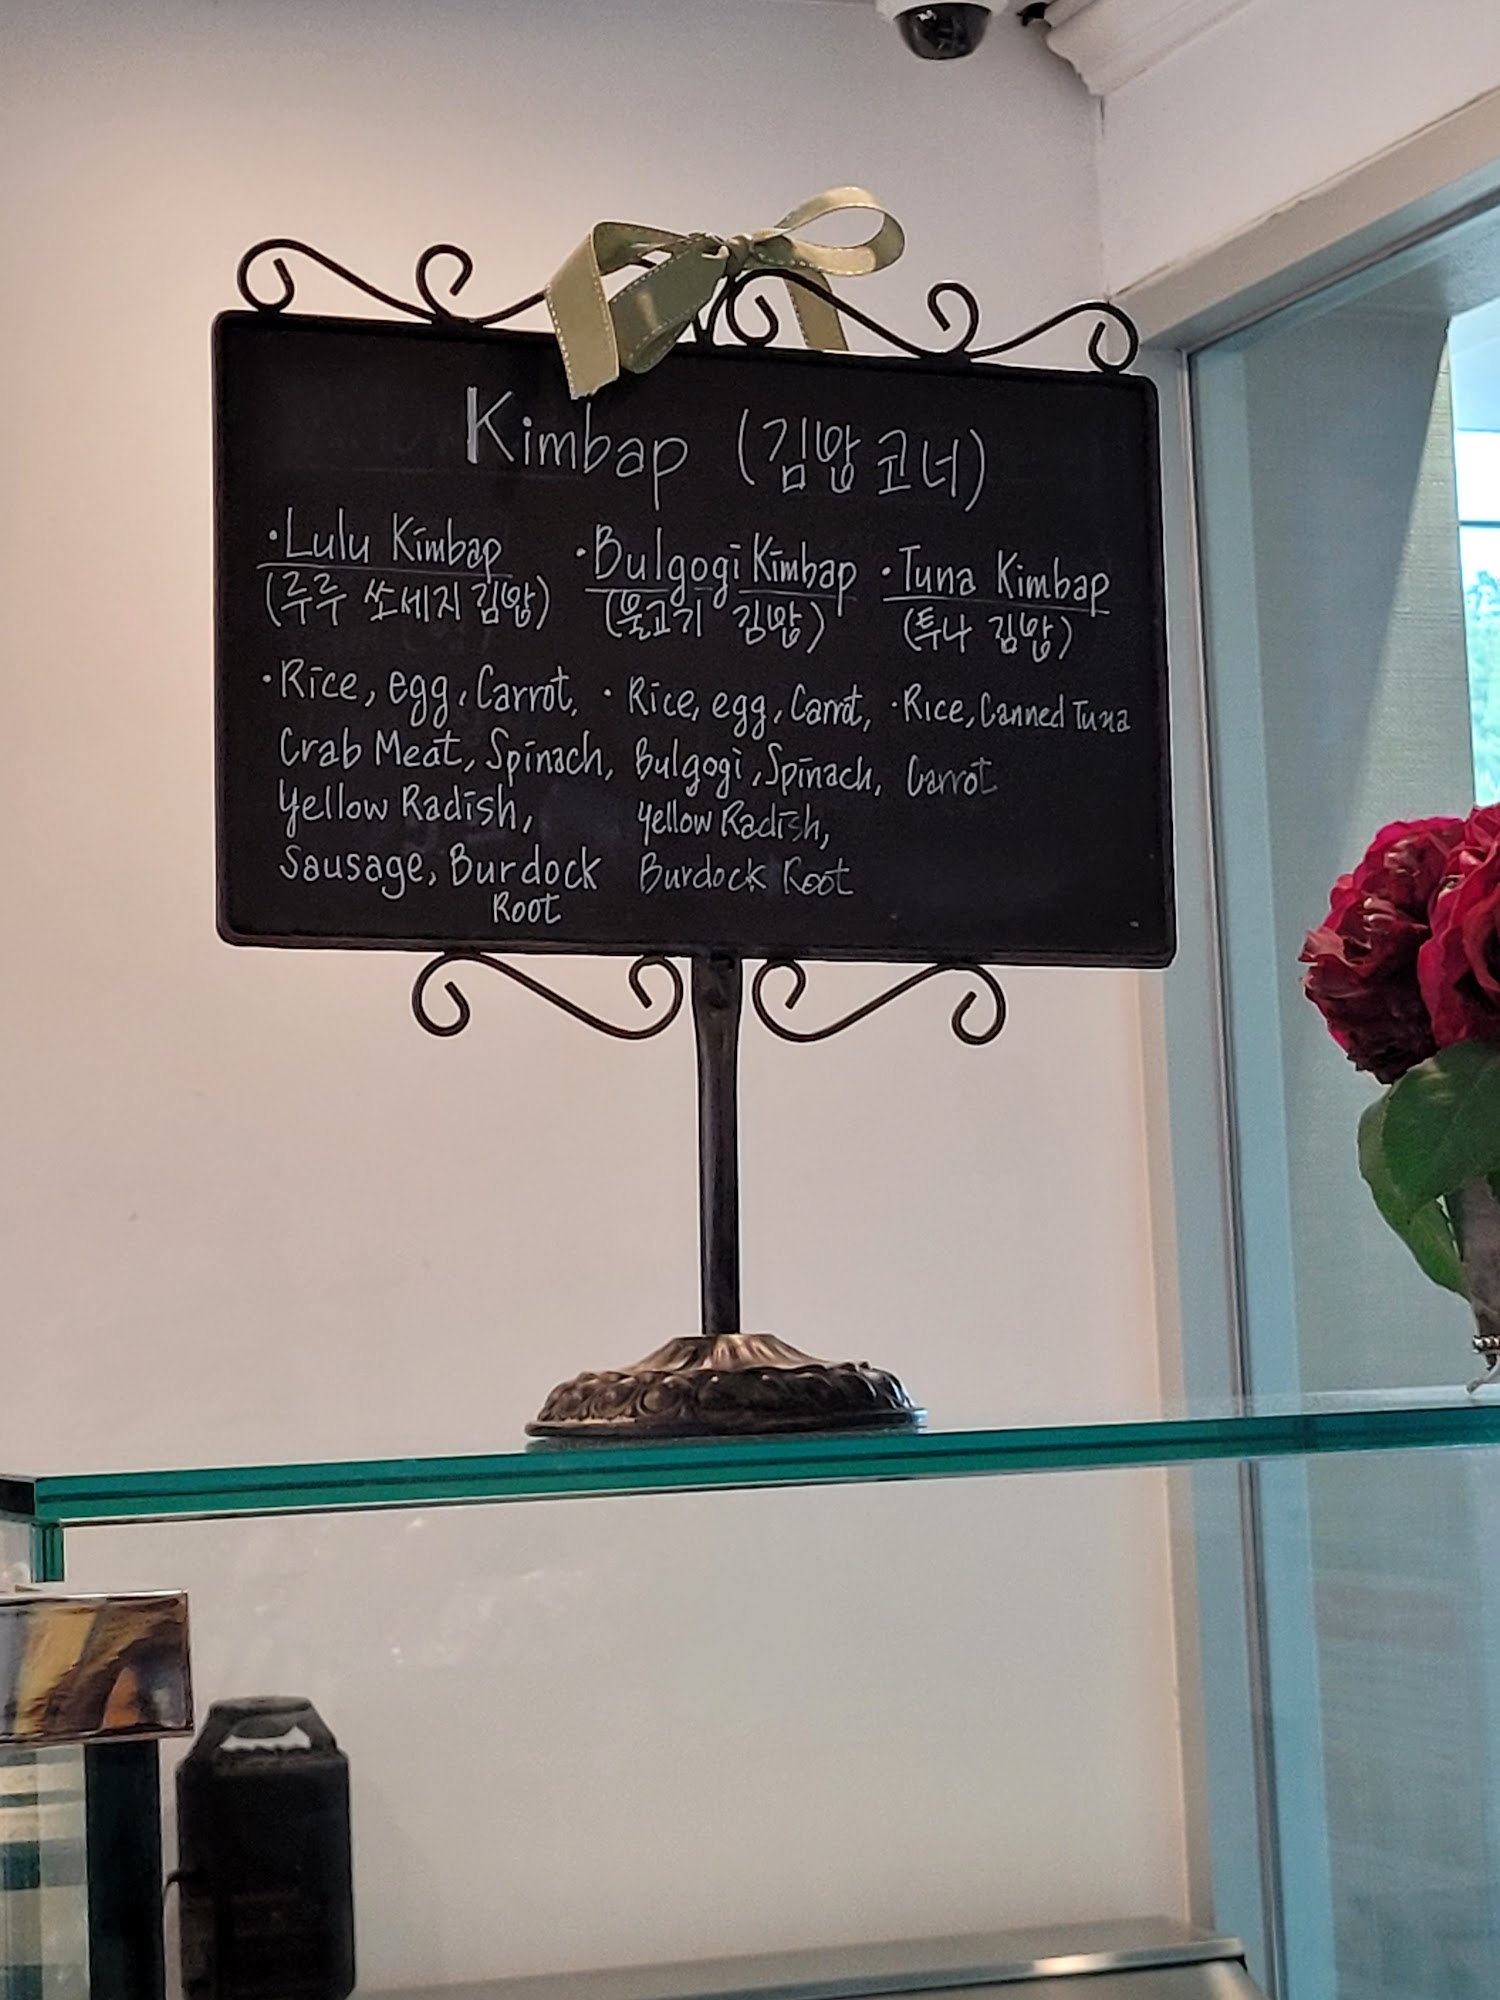 Kimbap (김밥 코너)
·Lulu Kimbap
(루루 쏘세지 김밥)
·Rice, egg, Carrot,
Crab Meat, Spinach,
Yellow Radish,
Sausage, Burdock
Root
·Bulgogi Kimbap
(불고기 김밥)
·Rice, egg, Carrot,
Bulgogi, Spinach,
Yellow Radish,
Burdock Root
·Tuna Kimbap
(투나 김밥)
·Rice, Canned Tuna
Carrot